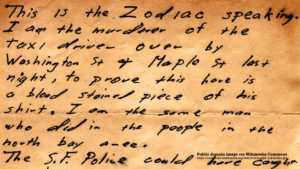 This is the Zodiac speaking.
I am the murderer of the
taxi driver over by
Washington St & Maple St last
night, to prove this here is
a blood stained piece of his
shirt. I am the same man
who did in the people in the
north bay area.
The S.F. Police could have caught
Public domain image via Wikimedia Commons